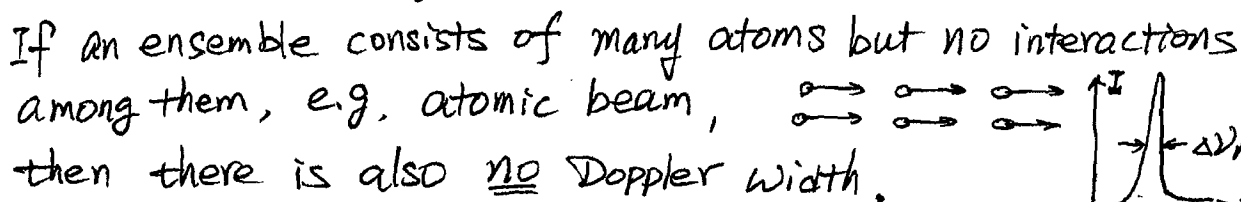 If an ensemble consists of many atoms but no interactions
among them, e.g. atomic beam, I
then there is also no Doppler width. Δν